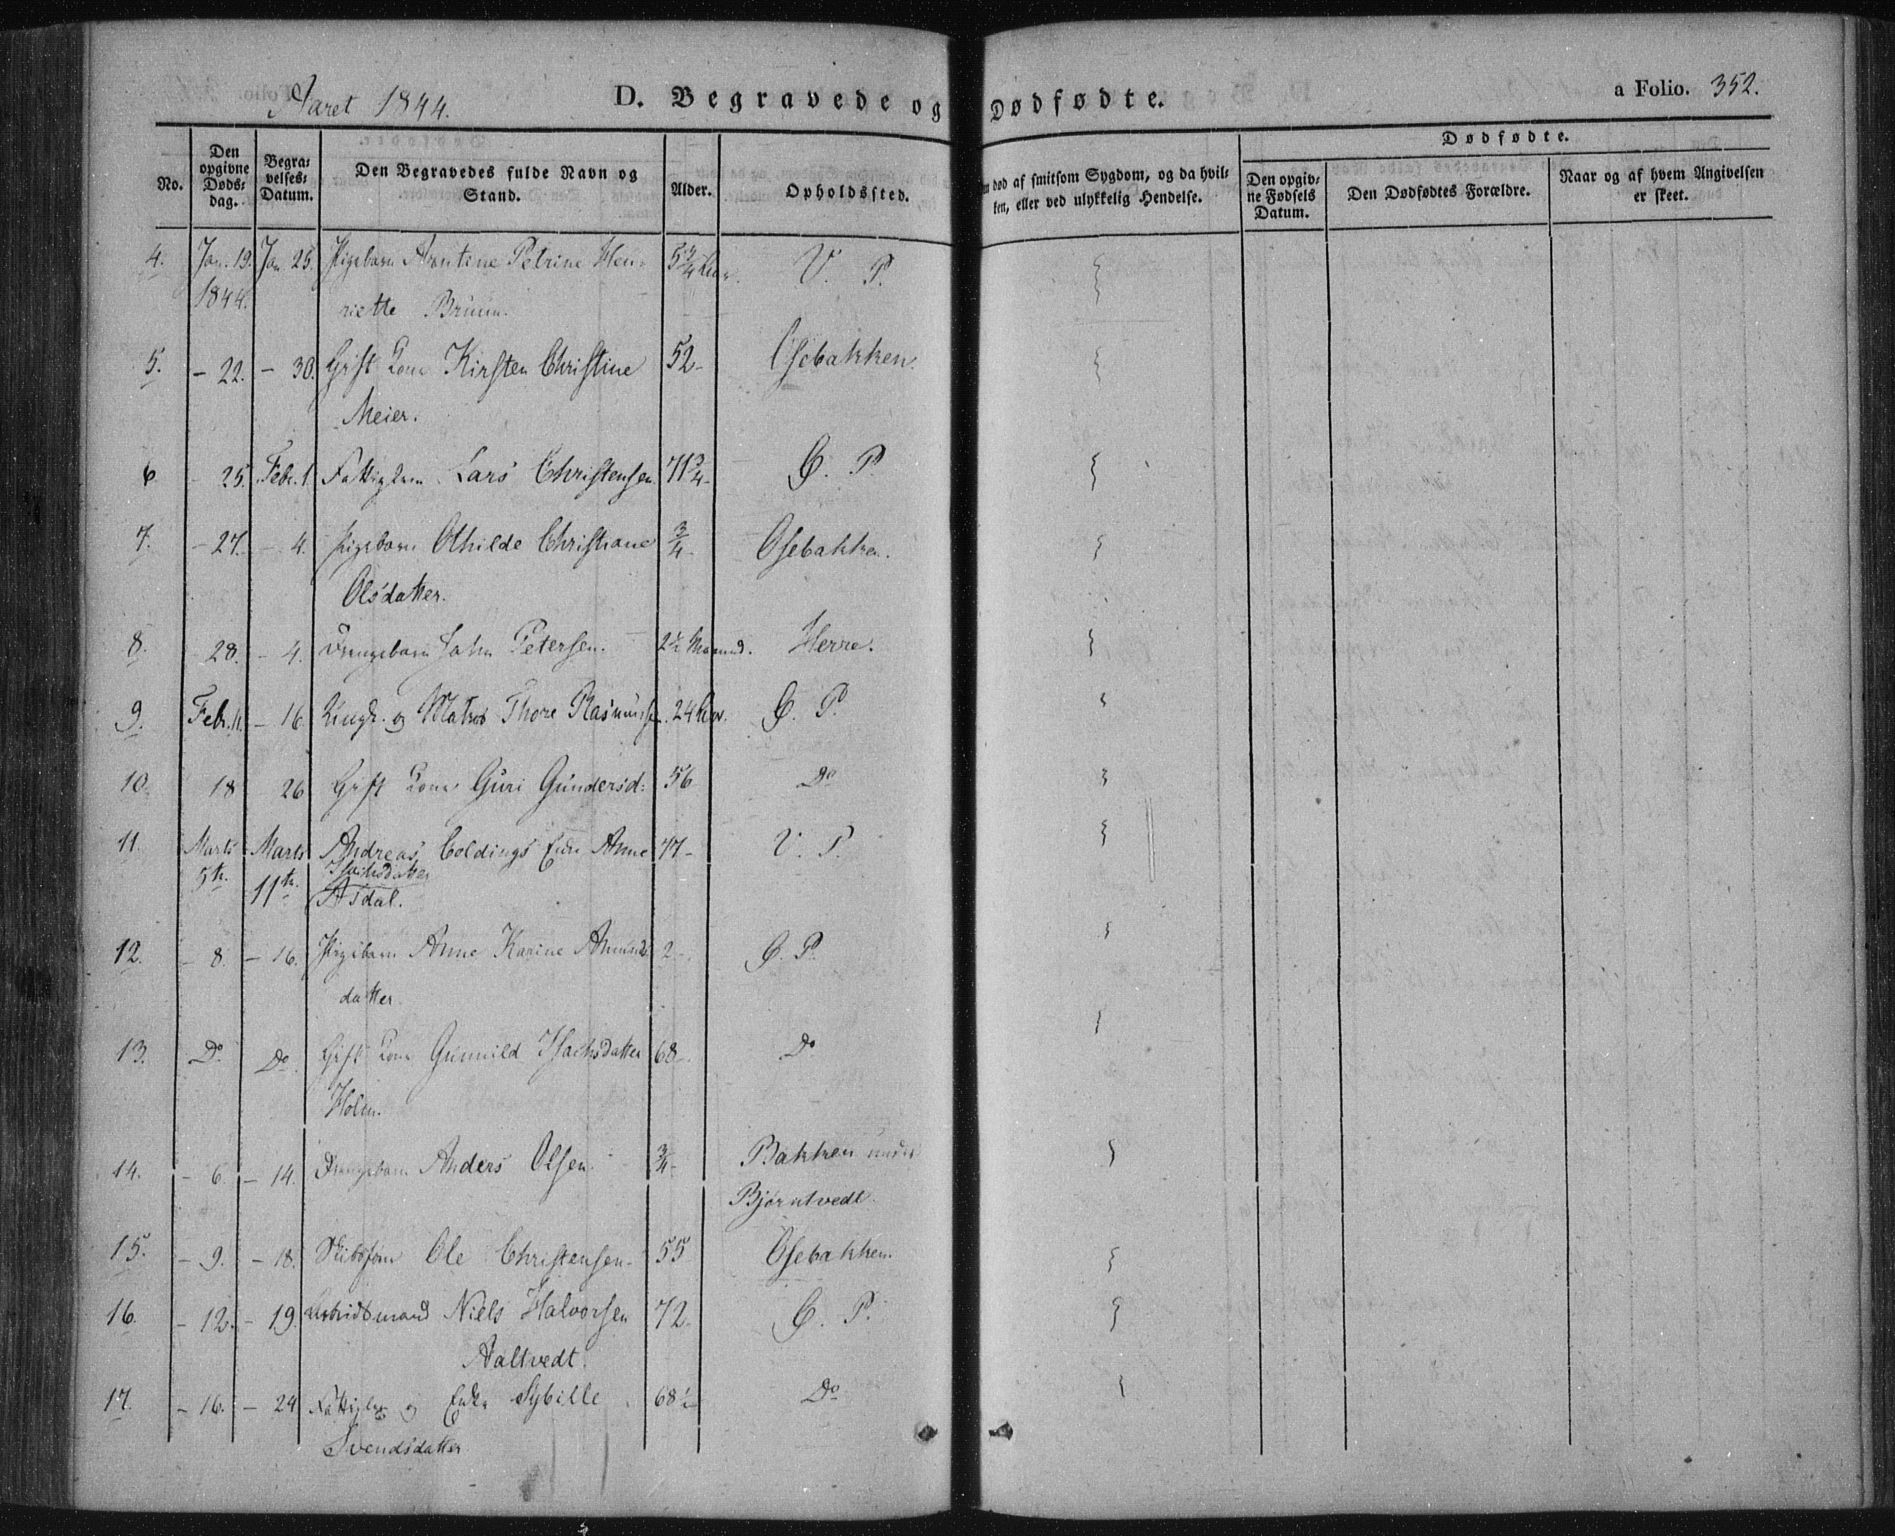 Aaret 1844. D. Begravede og Dødfødte. a Folio. 352.
No. Den opgivne Døds-dag. Begra-velses-Datum. Den Begravedes fulde Navn og Stand. Alder. Opholdssted. død af smitsom Sygdom, og da hvil-ken, eller ved ulykkelig Hendelse. Dødfødte. Den opgiv-ne Fødsels Datum. Den Dødfødtes Forældre. Naar og af hvem Angivelsen er skeet.
4. Jan. 19. Jan 25. Pigebarn Arntine Petrine Hen- 5 3/4 V. P.
1844. riette Bruun.
5. - 22. - 30. Gift Kone Kirsten Christine 52 - Osebakken.
Meier.
6 - 25. Febr. 1. Fattiglem Lars Christensen 71 3/4 - Ø. P.
7. - 27. - 4. Pigebarn Othilde Christiane 3/4 - Osebakken.
Olsdatter.
8. - 28. - 4. Drengebarn John Petersen. 2 1/2 Maaned. Herre.
9. Febr. 11. - 16. Ungk. og Matros Thore Rasmussen. 24 Ø. P.
10. 18 26 Gift Kone Guri Gundersd: 56 Do
11. Marts Marts Andreas Coldings Enke Anne 77 - V. P.
5te. 11te. Isachsdatter
Aasdal.
12. - 8. - 16. Pigebarn Anne Karine Amunds 2 - Ø. P.
datter.
13. Do Do Gift Kone Gunnild Isachsdatter 68 - Do
Holm.
14. - 6. - 14. Drengebarn Anders Olsen. 3/4 - Bakken under
Bjørntvedt.
15. - 9. - 18. Ole Christensen - 55 Osebakken.
16. - 12. - 19. Arbeidsmand Niels Halvorsen 72 - Ø. P.
Aaltvedt.
17. - 16. - 24 Fattiglem og Enke Sybille 68 1/2 Do
Svendsdatter